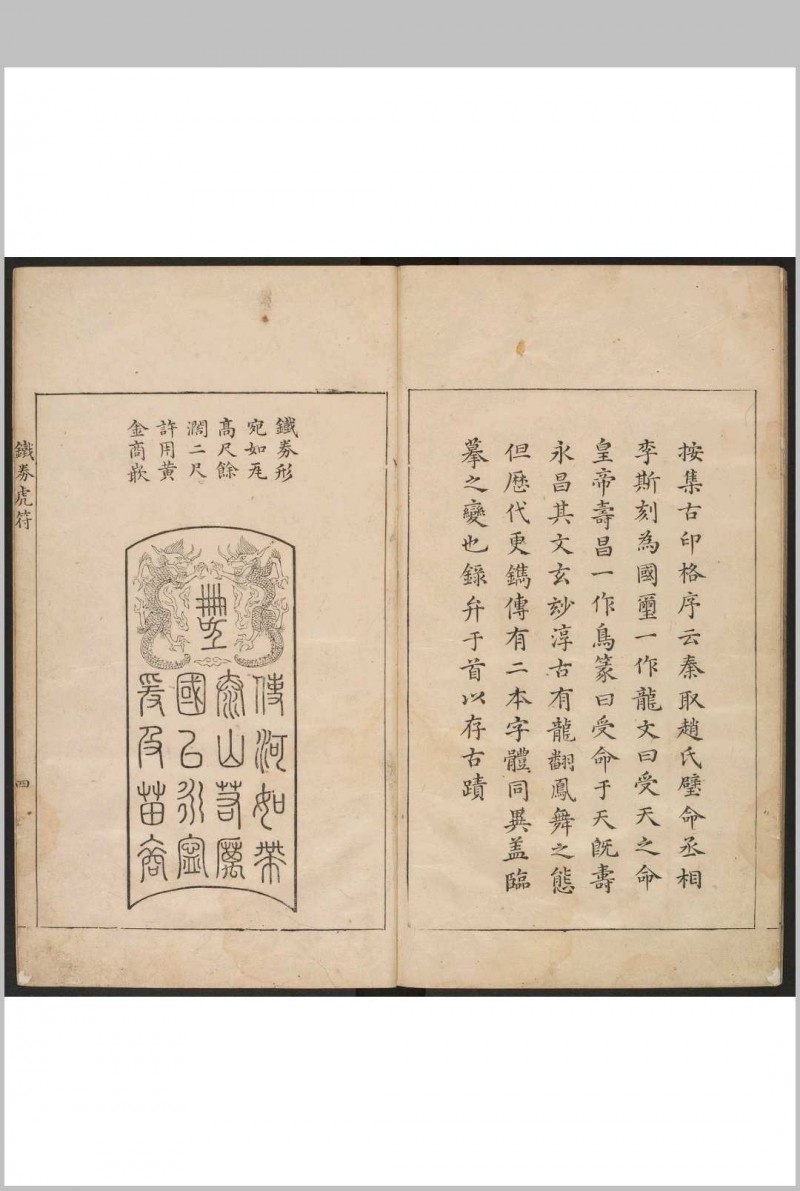 按集古印格序云秦取趙氏璧命丞相
李斯刻為國璽一作龍文曰受天之命
皇帝壽昌一作鳥篆曰受命于天旣壽
永昌其文玄玅淳古有龍翻鳳舞之態
但歷代更鐫傳有二本字體同異盖臨
摹之變也錄弁于首以存古蹟
鐵券形
宛如瓦
高尺餘
濶二尺
許用黄
金商嵌
使河如帶
泰山若厲
國以永寧
爰及苗裔
鐵券虎符
四